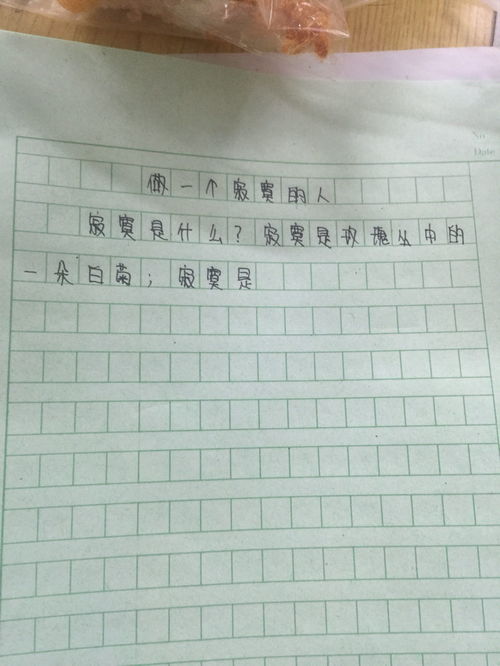 No
Date
做一个寂寞的人
寂寞是什么？寂寞是玫瑰丛中的
一朵白菊；寂寞是